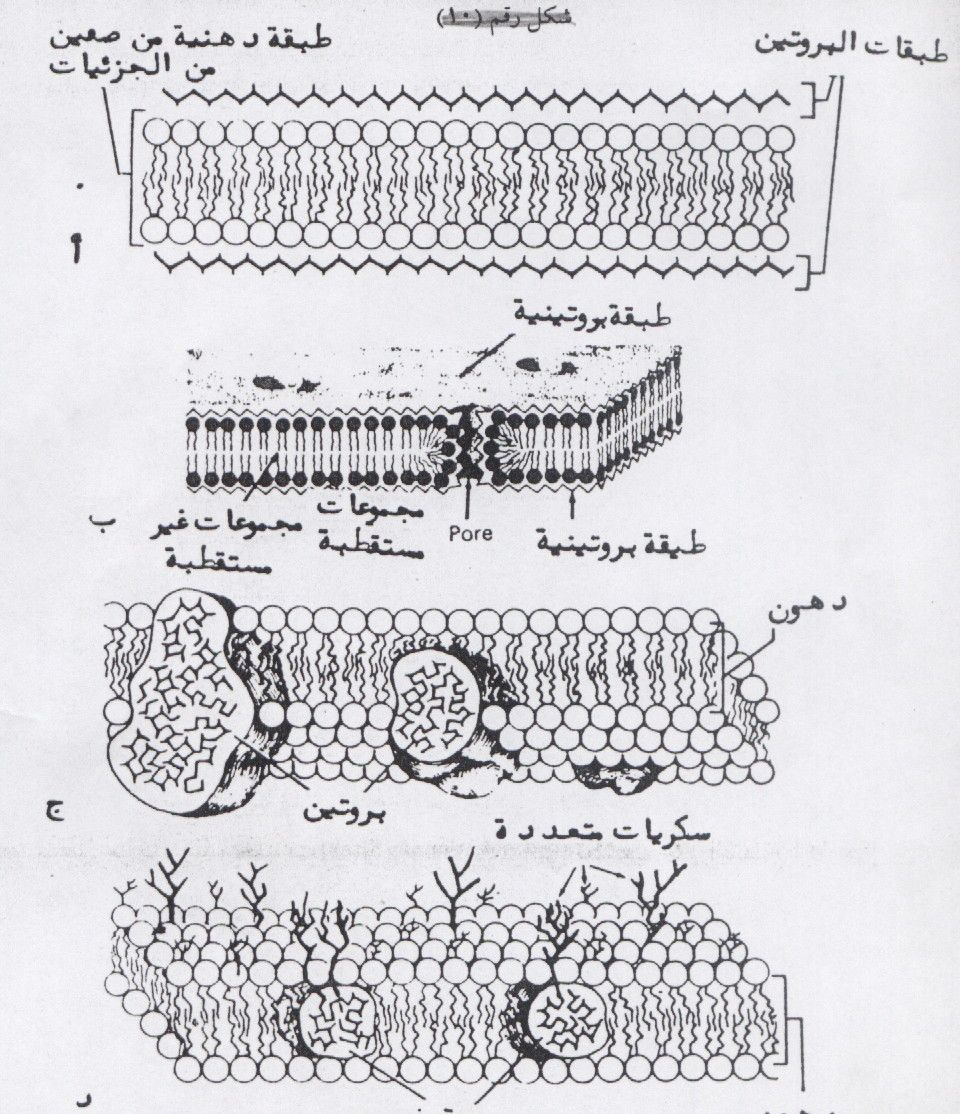 شكل رقم (١٠)
طبقات البروتين
طبقة دهنية من صفين
من الجزئيات
أ
طبقة بروتينية
مجموعات غير
مستقطبة
مجموعات
مستقطبة
Pore
طبقة بروتينية
ب
دهون
بروتين
ج
سكريات متعددة
د